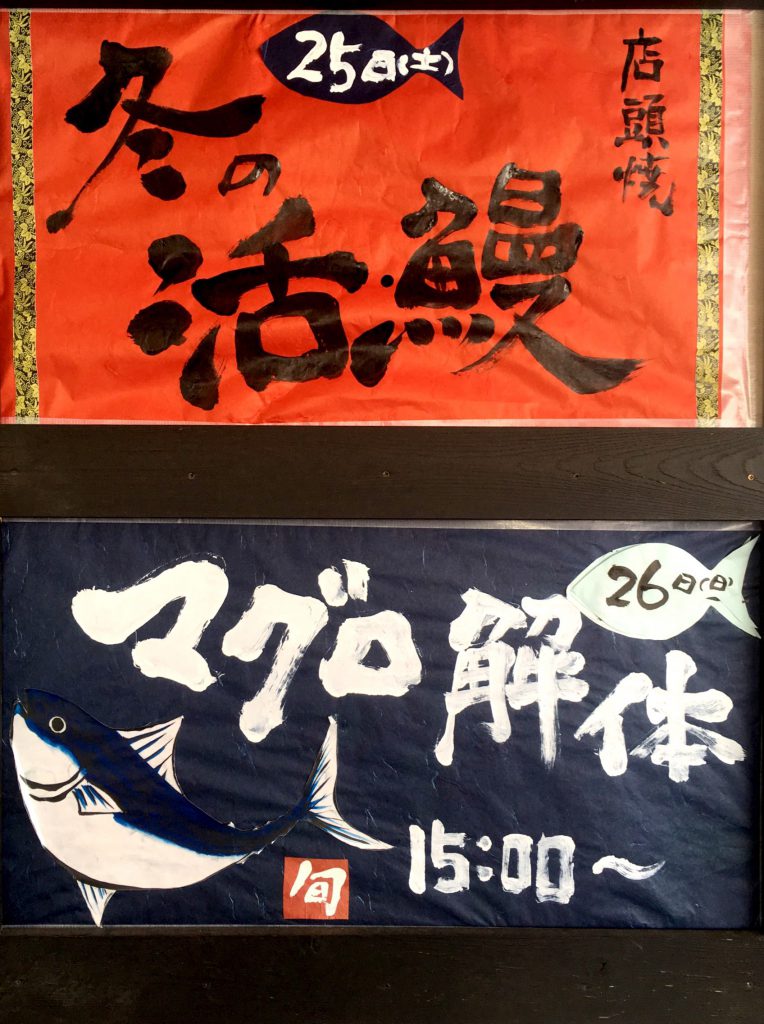 25日(土)
店頭焼
冬の
活鰻
26日(日)
マグロ解体
15:00〜
旬